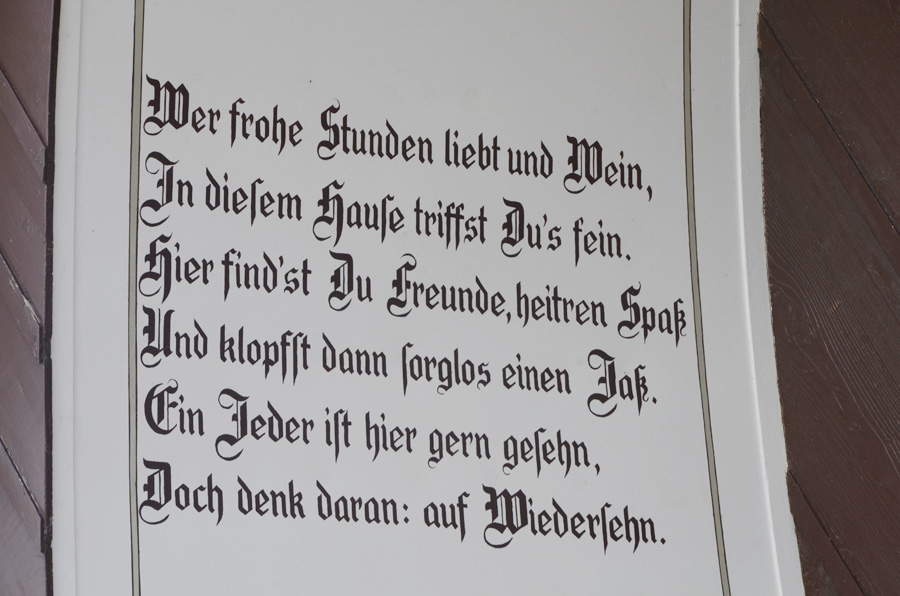 Wer frohe Stunden liebt und Wein,
In dieſem Hauſe triffſt Du's fein.
Hier find'st Du Freunde, heitren Spaß
Und klopfſt dann ſorglos einen Jaß.
Ein Jeder iſt hier gern geſehn,
Doch denk daran: auf Wiederſehn.